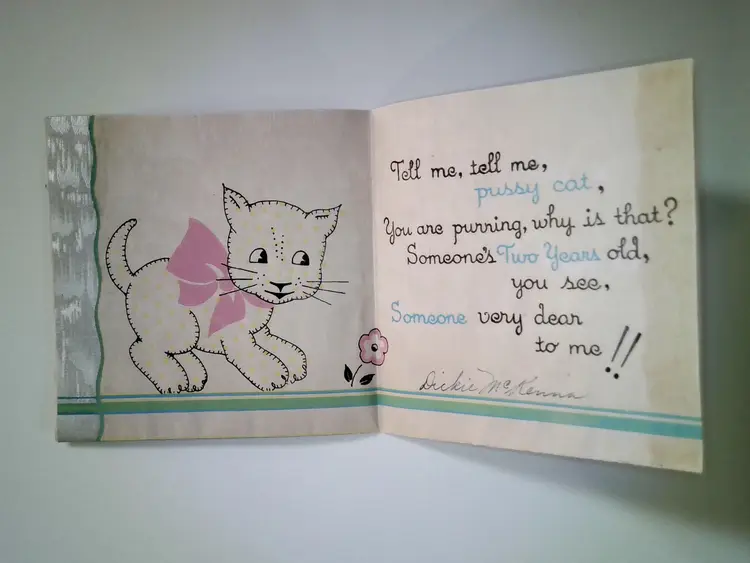 Tell me, tell me,
pussy cat,
You are purring, why is that?
Someone's Two Years old,
you see,
Someone very dear
to me!!
Dickie McKenna